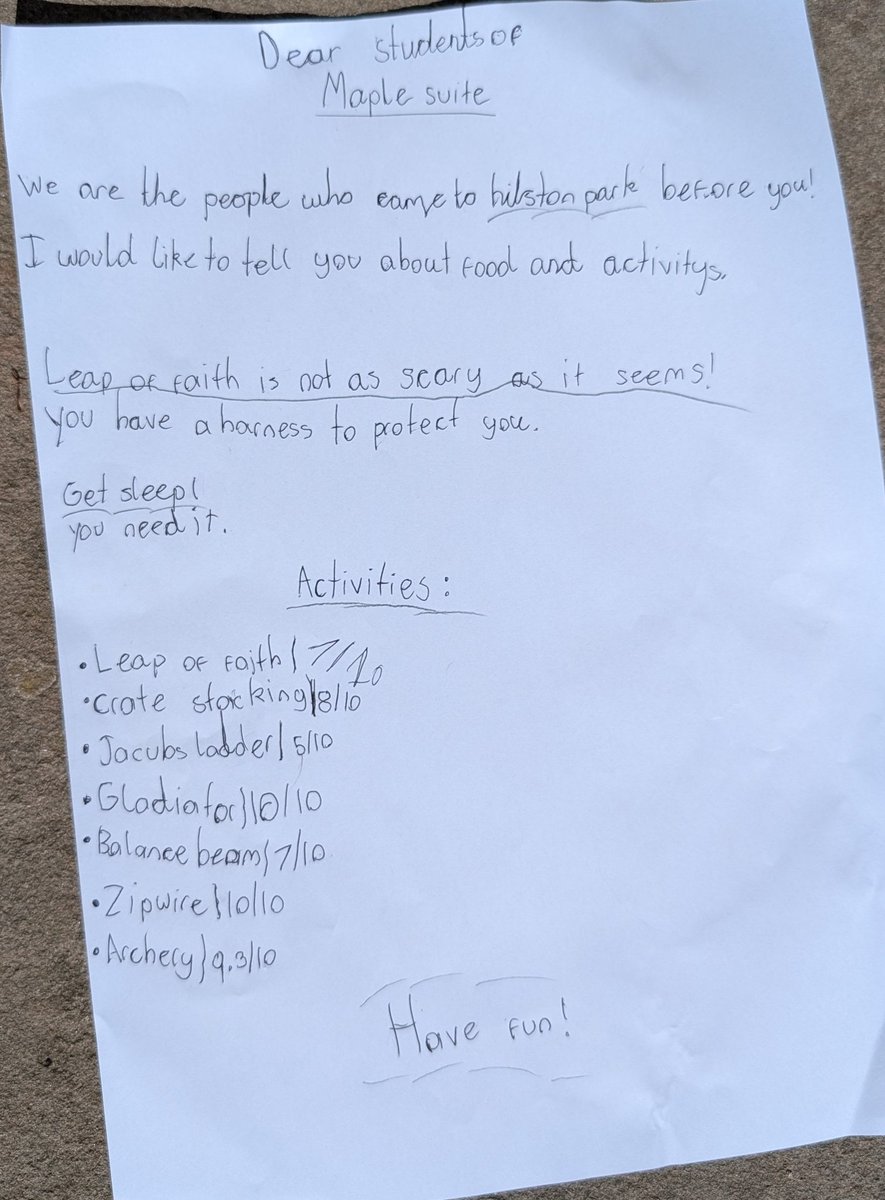 Dear students of
Maple suite
We are the people who came to hilston park before you!
I would like to tell you about food and activitys.
Leap of faith is not as scary as it seems!
you have a harness to protect you.
Get sleep!
you need it.
Activities:
• Leap of faith | 7/10
• Crate stacking | 8/10
• Jacubs ladder | 5/10
• Gladiator } 10/10
• Balance beam | 7/10
• Zipwire } 10/10
• Archery } 9.3/10
Have fun!